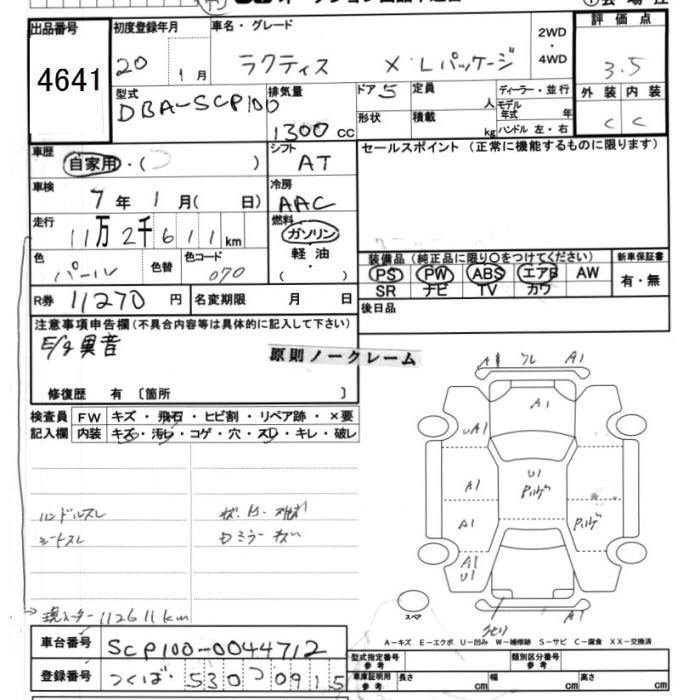 出品番号
4641
初度登録年月
20 1月
車名・グレード
ラクティス X・Lパッケージ
2WD
・
4WD
評価点
3.5
外装 内装
C C
型式
DBA-SCP100
排気量
1300cc
ドア 5
形状
定員 人
積載 kg
ディーラー・並行
モデル年式 年
ハンドル 左・右
車歴
自家用・( )
シフト
AT
セールスポイント (正常に機能するものに限ります)
車検
7年 1月( 日)
冷房
AAC
走行
11万2千611km
燃料
ガソリン
軽油
・
( )
色
パール
色替
色コード
070
装備品 (純正品に限り○をつけてください)
PS PW ABS エアB AW
SR ナビ TV カワ
新車保証書
有・無
R券 11270円
名変期限 月 日
後日品
注意事項申告欄(不具合内容等は具体的に記入して下さい)
E/g異音
原則ノークレーム
修復歴 有 〔箇所 〕
検査員
記入欄
FW キズ・飛石・ヒビ割・リペア跡・×要
内装 キズ・汚レ・コゲ・穴・スレ・キレ・破レ
ハンドルスレ
シートスレ
Dミラーキズ
現メーター112611km
A1 ワレ A1
A1
UA1
U1
A1
A1
A1
U1
A1
スペア
A-キズ E-エクボ U-凹み W-補修跡 S-サビ C-腐食 XX-交換済
車台番号
SCP100-0044712
登録番号
つくば 530 つ 0915
型式指定番号
参考
類別区分番号
参考
車庫証明用
参考
長さ cm 幅 cm 高さ cm